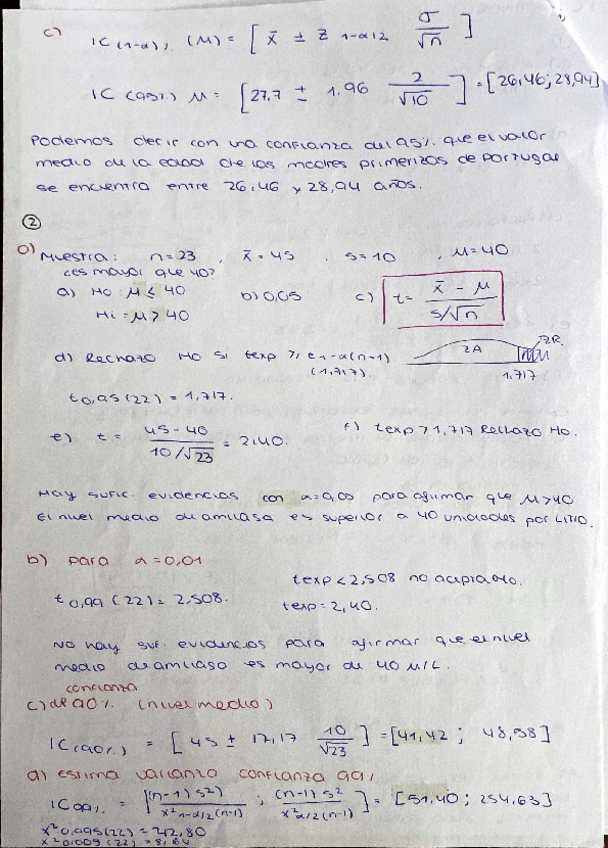 c) IC (1-α)% (μ) = [ x̄ ± z 1-α/2 σ/√n ]
IC (95%) μ = [ 27,7 ± 1,96 2/√10 ] = [26,46; 28,94]
Podemos decir con una confianza del 95% que el valor
medio de la edad de las madres primerizas de Portugal
se encuentra entre 26,46 y 28,94 años.
②
a) Muestra: n=23 , x̄=45 , s=10 , μ=40
¿es mayor que 40?
a) H0: μ ≤ 40 b) 0,05 c) t = x̄ - μ / s/√n
H1: μ > 40
d) Rechazo H0 si texp ≥ t1-α(n-1) ZA ZR
(1,717). 1,717
t0,95(22) = 1,717.
e) t = 45-40 / 10/√23 = 2,40. f) texp > 1,717 Rechazo H0.
Hay sufic. evidencias con α=0,05 para afirmar que μ>40
El nivel medio de amilasa es superior a 40 unidades por Litro.
b) para α=0,01
texp < 2,508 no acepta H0.
t0,99 (22) = 2,508. texp = 2,40.
No hay suf. evidencias para afirmar que el nivel
medio de amilasa es mayor de 40 μ/L.
confianza
c) del 90% (nivel medio)
IC(90%) = [ 45 ± 17,17 10/√23 ] = [41,42 ; 48,58]
d) estima varianza confianza 99%
IC99% = [ (n-1)s²) / x² 1-α/2 (n-1) ; (n-1) s² / x² α/2 (n-1) ] = [51,40 ; 254,63]
x² 0,995(22) = 42,80
x² 0,005 (22) = 8,64